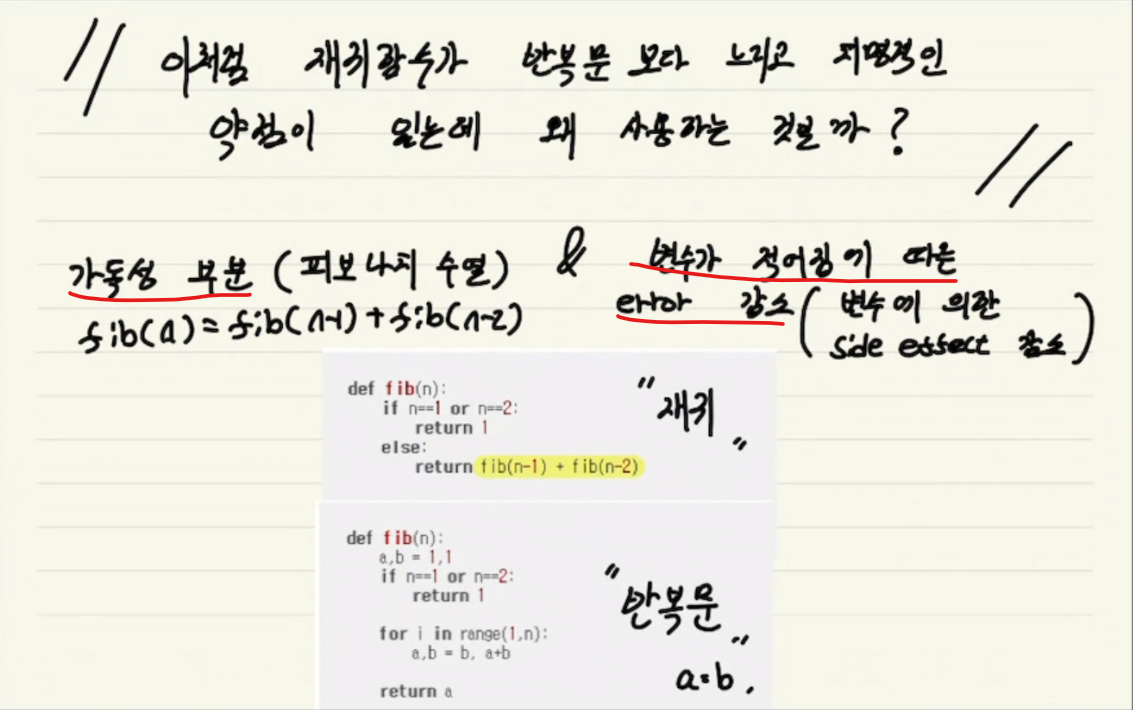 이처럼 재귀함수가 반복문 보다 느리고 치명적인
약점이 있는데 왜 사용하는 것일까?
가독성 부분 (피보나치 수열) & 변수가 적어짐에 따른
fib(n) = fib(n-1) + fib(n-2) error 감소 (변수에 의한
side effect 감소)
def fib(n):
if n==1 or n==2:
return 1
else:
return fib(n-1) + fib(n-2)
"재귀"
def fib(n):
a,b = 1,1
if n==1 or n==2:
return 1
for i in range(1,n):
a,b = b, a+b
return a
"반복문"
a=b,